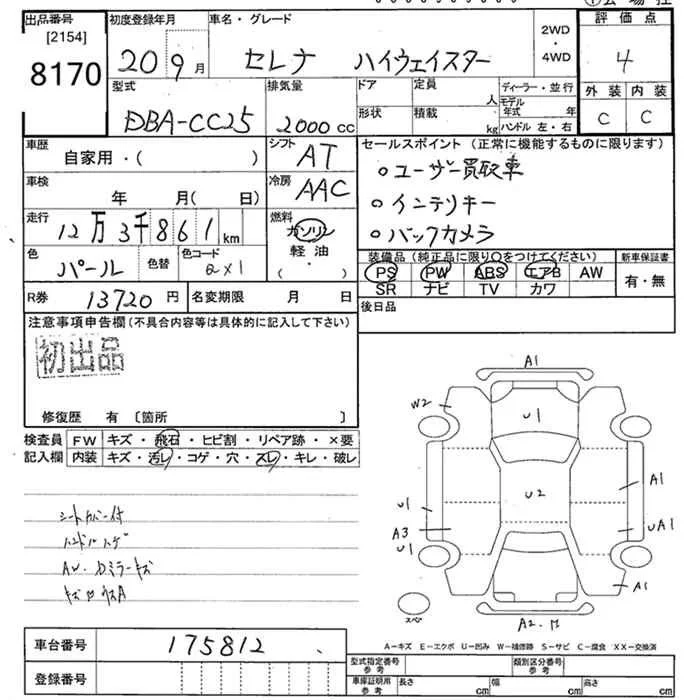 出品番号
[2154]
8170
初度登録年月
20 9月
車名・グレード
セレナ ハイウェイスター
2WD
・
4WD
評価点
4
型式
DBA-CC25
排気量
2000 cc
ドア
定員
人
形状
積載
kg
ディーラー・並行
モデル
年式 年
ハンドル 左・右
外装 内装
C C
車歴
自家用・( )
シフト
AT
車検
年 月(日)
冷房
AAC
走行
12万3千861km
燃料
ガソリン
軽油
・
( )
色
パール
色替
色コード
QX1
R券
13720円
名変期限 月 日
セールスポイント(正常に機能するものに限ります)
○ユーザー買取車
○インテリキー
○バックカメラ
装備品(純正品に限り○をつけてください)
PS PW ABS エアB AW
SR ナビ TV カワ
新車保証書
有・無
後日品
注意事項申告欄(不具合内容等は具体的に記入して下さい)
初出品
修復歴 有 〔箇所 〕
検査員
記入欄
FW キズ・飛石・ヒビ割・リペア跡・×要
内装 キズ・汚レ・コゲ・穴・スレ・キレ・破レ
シートカバー付
ハンドルハゲ
AW・Dミラーキズ
A1
W2
U1
U2
A1
U1
A3
U1
UA1
A1
スペア
A2
A−キズ E−エクボ U−凹み W−補修跡 S−サビ C−腐食 XX−交換済
車台番号
175812
登録番号
型式指定番号
参考
類別区分番号
参考
車庫証明用
参考
長さ cm
幅 cm
高さ cm